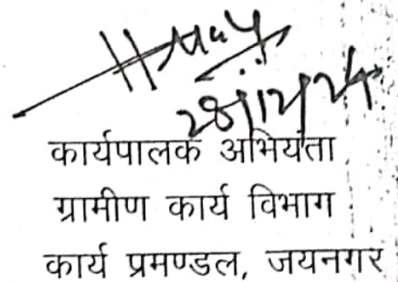 28/12/24
कार्यपालक अभियंता
ग्रामीण कार्य विभाग
कार्य प्रमण्डल, जयनगर